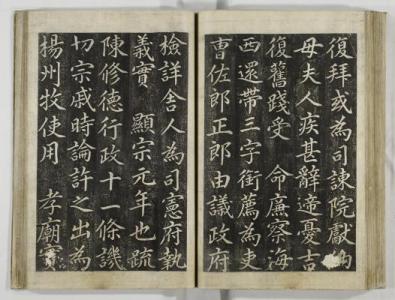 復拜或為司諫院獻納
母夫人疾甚辭適憂吉
復舊踐受　命廉察海
西還帶三字銜薦為吏
曹佐郎正郎由議政府
檢詳舍人為司憲府執
義實　顯宗元年也疏
陳修德行政十一條譏
切宗戚時論許之出為
楊州牧使用　孝廟實